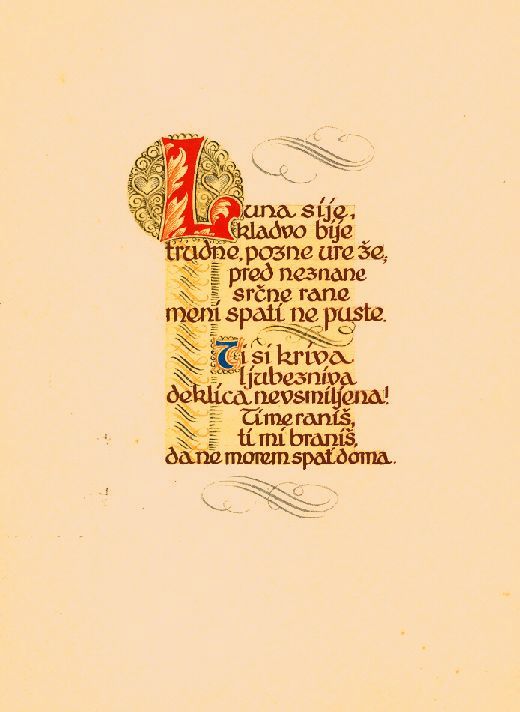 Luna sije,
kladvo bije
trudne, pozne ure že;
pred neznane
srčne rane
meni spati ne puste.
Ti si kriva
ljubezniva
deklica nevsmiljena!
Ti me raniš,
ti mi braniš,
da ne morem spat' doma.